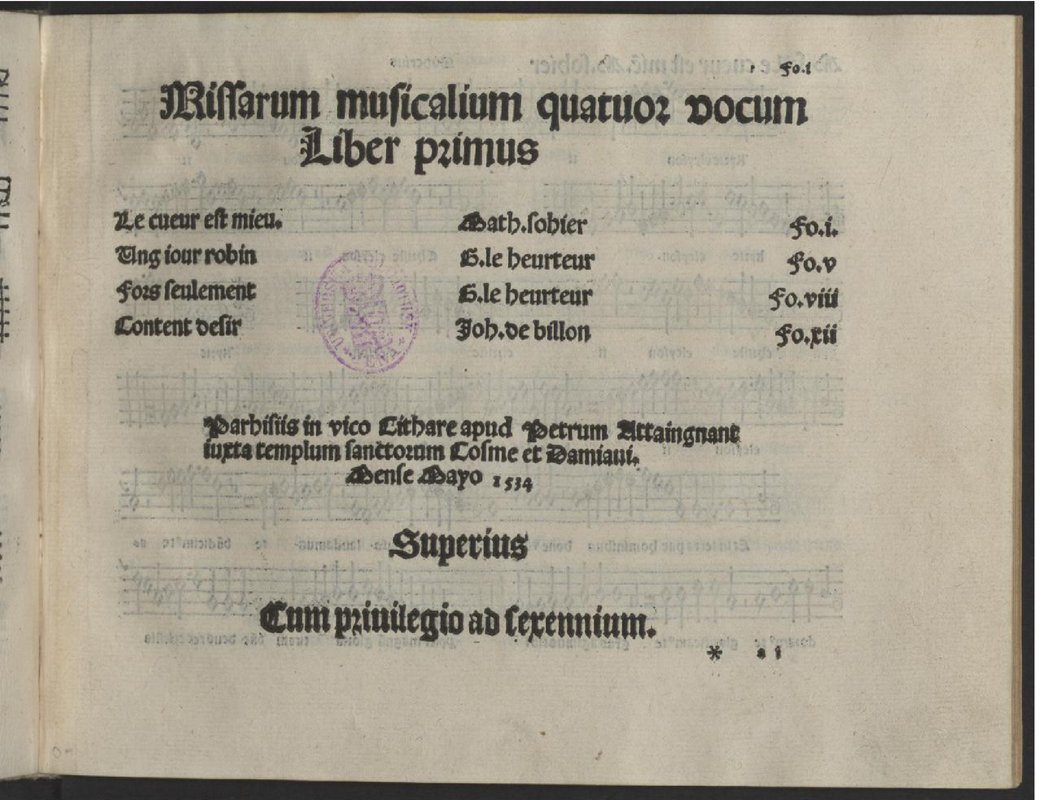 Fo.i
Missarum musicalium quatuor vocum
Liber primus
Le cueur est mieu. Math.sohier Fo.i.
Ung iour robin G.le heurteur Fo.v
Fors seulement G.le heurteur Fo.viii
Content desir Joh.de billon Fo.xii
Parhisiis in vico Cithare apud Petrum Attaingnant
iuxta templum sanctorum Cosme et Damiani.
Mense Mayo 1534
Superius
Cum priuilegio ad sexennium.
* a i